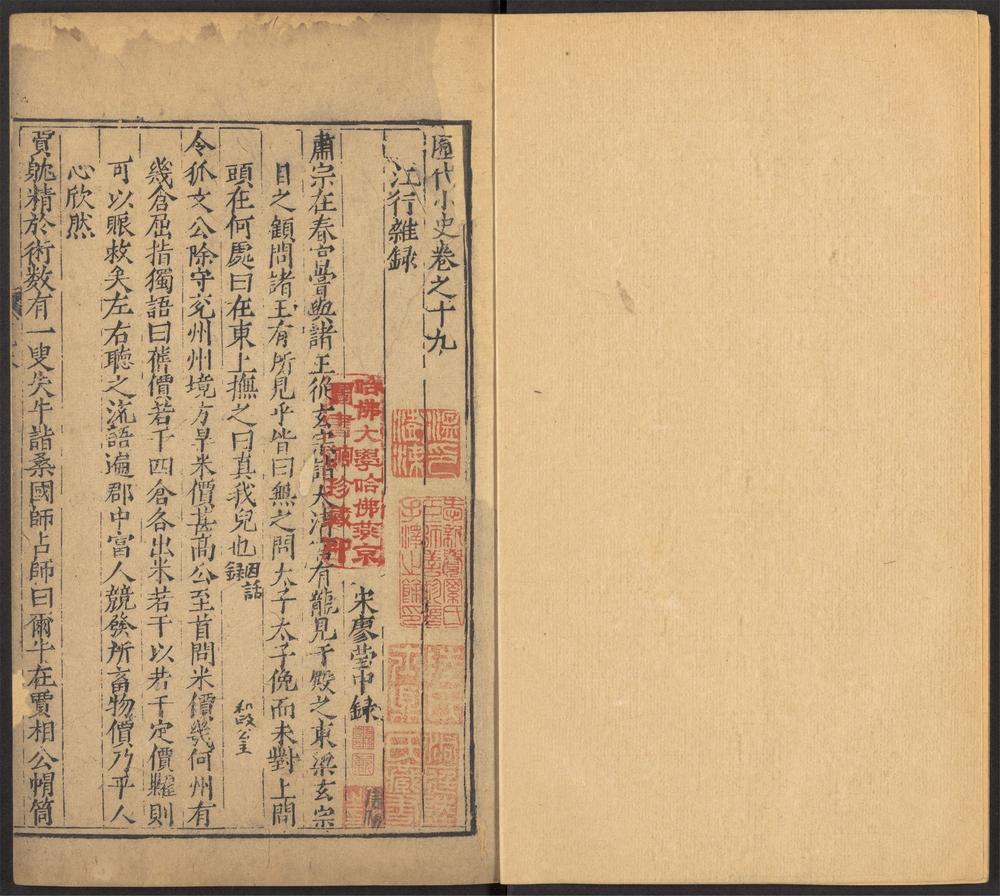 歷代小史卷之十九
江行雜録
宋廖瑩中録
肅宗在春宮嘗與諸王從玄宗詣太清宮有龍見于殿之東梁玄宗
目之顧問諸王有所見乎皆曰無之問太子太子俛而未對上問
頭在何處曰在東上撫之曰真我兒也 因話録
和政公主
令狐文公除守兗州州境方旱米價甚高公至首問米價幾何州有
幾倉屈指獨語曰舊價若干四倉各出米若干以若干定價糶則
可以賑救矣左右聽之流語遍郡中富人競發所畜物價乃平人
心欣然
賈躭精於術数有一叟失牛詣桑國師占師曰爾牛在賈相公帽筒
哈佛大學哈佛燕京
圖書館珍藏印